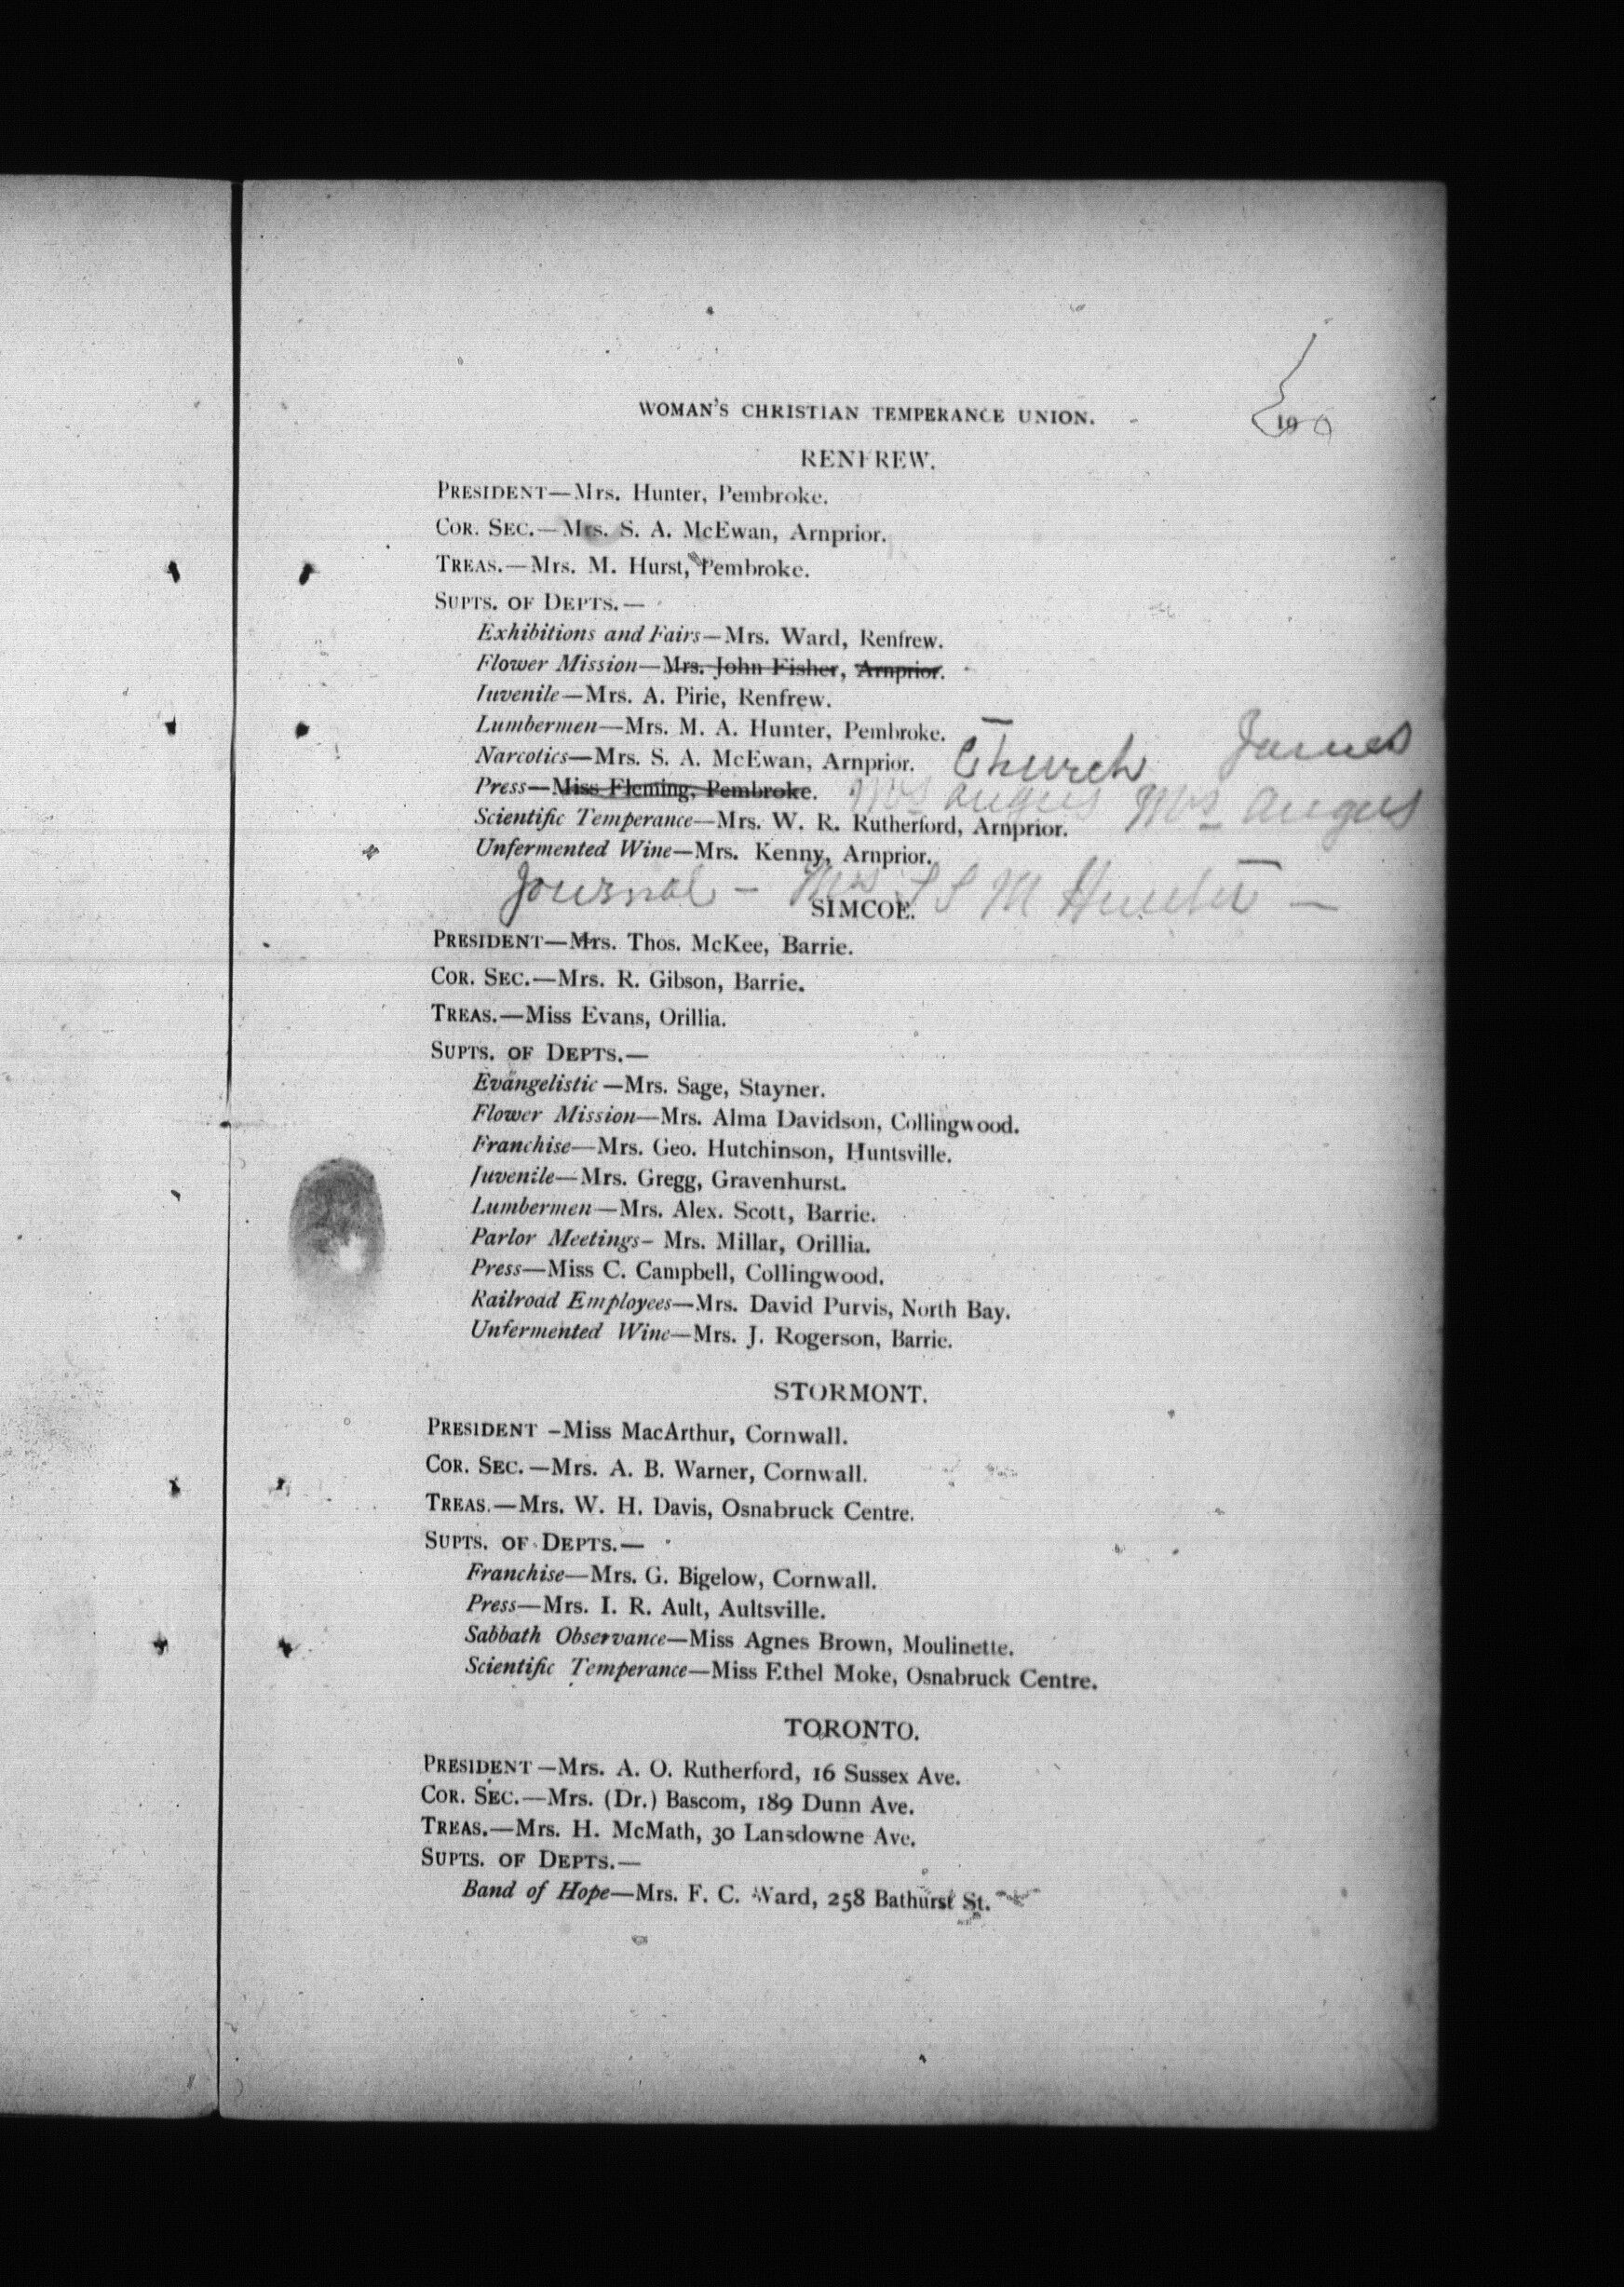 WOMAN'S CHRISTIAN TEMPERANCE UNION. 19
RENFREW.
PRESIDENT—Mrs. Hunter, Pembroke.
COR. SEC.—Mrs. S. A. McEwan, Arnprior.
TREAS.—Mrs. M. Hurst, Pembroke.
SUPTS. OF DEPTS.—
Exhibitions and Fairs—Mrs. Ward, Renfrew.
Flower Mission—Mrs. John Fisher, Arnprior.
Juvenile—Mrs. A. Pirie, Renfrew.
Lumbermen—Mrs. M. A. Hunter, Pembroke.
Narcotics—Mrs. S. A. McEwan, Arnprior. Church James
Press—Miss Fleming, Pembroke. Mrs Angus Mrs Angus
Scientific Temperance—Mrs. W. R. Rutherford, Arnprior.
Unfermented Wine—Mrs. Kenny, Arnprior.
Journal — Mrs M Hunter —
SIMCOE.
PRESIDENT—Mrs. Thos. McKee, Barrie.
COR. SEC.—Mrs. R. Gibson, Barrie.
TREAS.—Miss Evans, Orillia.
SUPTS. OF DEPTS.—
Evangelistic—Mrs. Sage, Stayner.
Flower Mission—Mrs. Alma Davidson, Collingwood.
Franchise—Mrs. Geo. Hutchinson, Huntsville.
Juvenile—Mrs. Gregg, Gravenhurst.
Lumbermen—Mrs. Alex. Scott, Barrie.
Parlor Meetings– Mrs. Millar, Orillia.
Press—Miss C. Campbell, Collingwood.
Railroad Employees—Mrs. David Purvis, North Bay.
Unfermented Wine—Mrs. J. Rogerson, Barrie.
STORMONT.
PRESIDENT –Miss MacArthur, Cornwall.
COR. SEC.—Mrs. A. B. Warner, Cornwall.
TREAS.—Mrs. W. H. Davis, Osnabruck Centre.
SUPTS. OF DEPTS.—
Franchise—Mrs. G. Bigelow, Cornwall.
Press—Mrs. I. R. Ault, Aultsville.
Sabbath Observance—Miss Agnes Brown, Moulinette.
Scientific Temperance—Miss Ethel Moke, Osnabruck Centre.
TORONTO.
PRESIDENT—Mrs. A. O. Rutherford, 16 Sussex Ave.
COR. SEC.—Mrs. (Dr.) Bascom, 189 Dunn Ave.
TREAS.—Mrs. H. McMath, 30 Lansdowne Ave.
SUPTS. OF DEPTS.—
Band of Hope—Mrs. F. C. Ward, 258 Bathurst St.